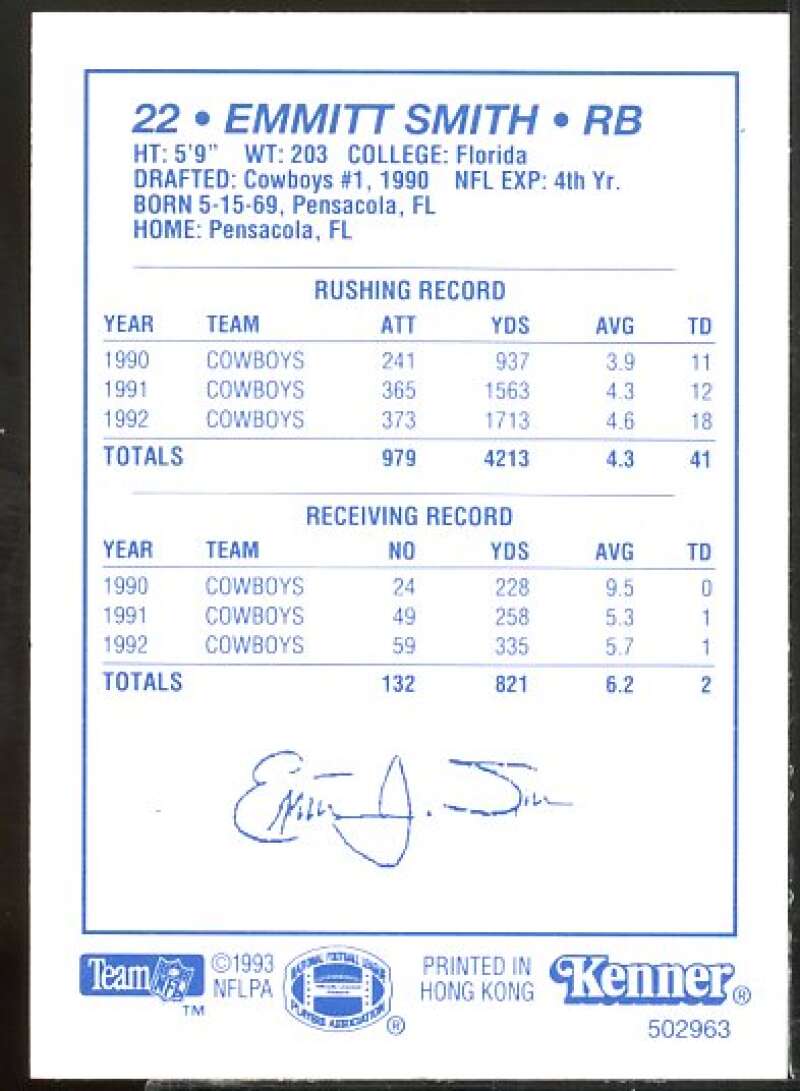 22 • EMMITT SMITH • RB
HT: 5'9" WT: 203 COLLEGE: Florida
DRAFTED: Cowboys #1, 1990 NFL EXP: 4th Yr.
BORN 5-15-69, Pensacola, FL
HOME: Pensacola, FL
RUSHING RECORD
YEAR TEAM ATT YDS AVG TD
1990 COWBOYS 241 937 3.9 11
1991 COWBOYS 365 1563 4.3 12
1992 COWBOYS 373 1713 4.6 18
TOTALS 979 4213 4.3 41
RECEIVING RECORD
YEAR TEAM NO YDS AVG TD
1990 COWBOYS 24 228 9.5 0
1991 COWBOYS 49 258 5.3 1
1992 COWBOYS 59 335 5.7 1
TOTALS 132 821 6.2 2
Team NFL ™
©1993
NFLPA
NATIONAL FOOTBALL LEAGUE
PLAYERS ASSOCIATION ®
PRINTED IN
HONG KONG
Kenner®
502963